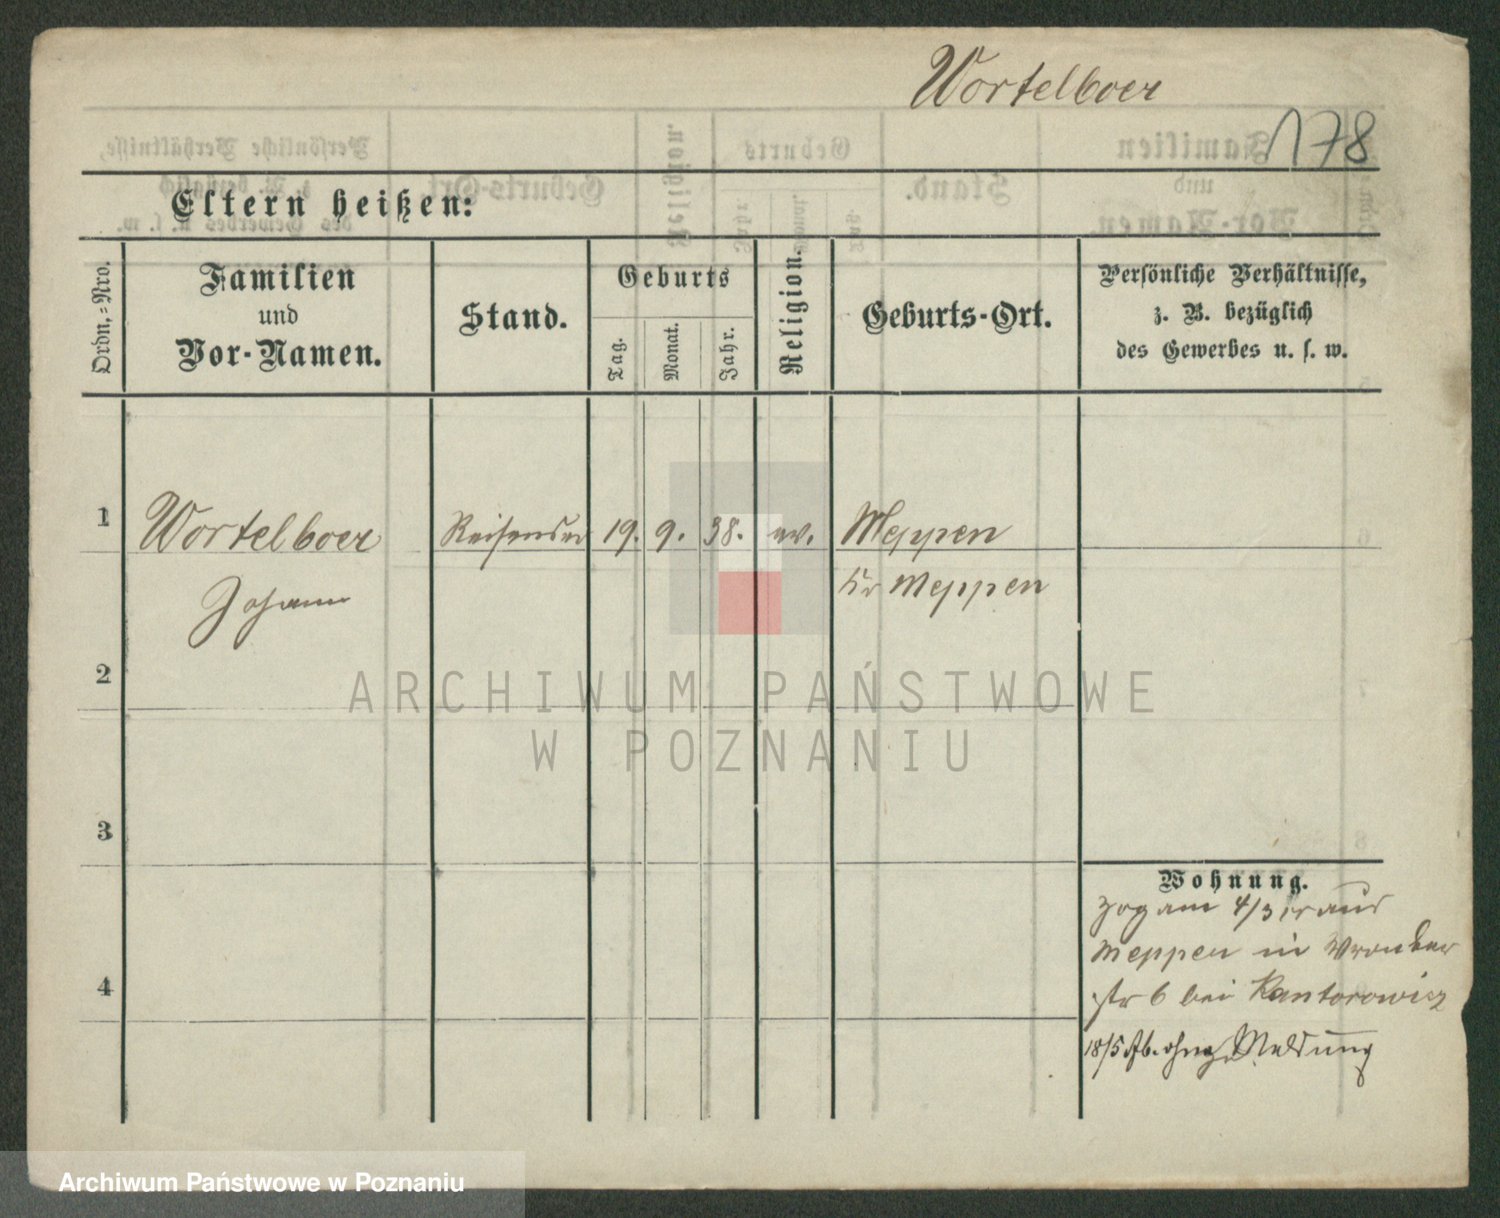 Wortelboer
178
Eltern heißen:
Ordn.-Nro.
Familien
und
Vor-Namen.
Stand.
Geburts
Tag.
Monat.
Jahr.
Religion.
Geburts-Ort.
Persönliche Verhältnisse,
z. B. bezüglich
des Gewerbes u. s. w.
1
Wortelboer
Johann
Reisender
19.
9.
38.
ev.
Meppen
Kr Meppen
2
3
4
Wohnung.
zog am 4/3 cr aus
Meppen in Wronker
str 6 bei Kantorowicz
18/5 Ab. ohne Meldung
ARCHIWUM PAŃSTWOWE
W POZNANIU
Archiwum Państwowe w Poznaniu